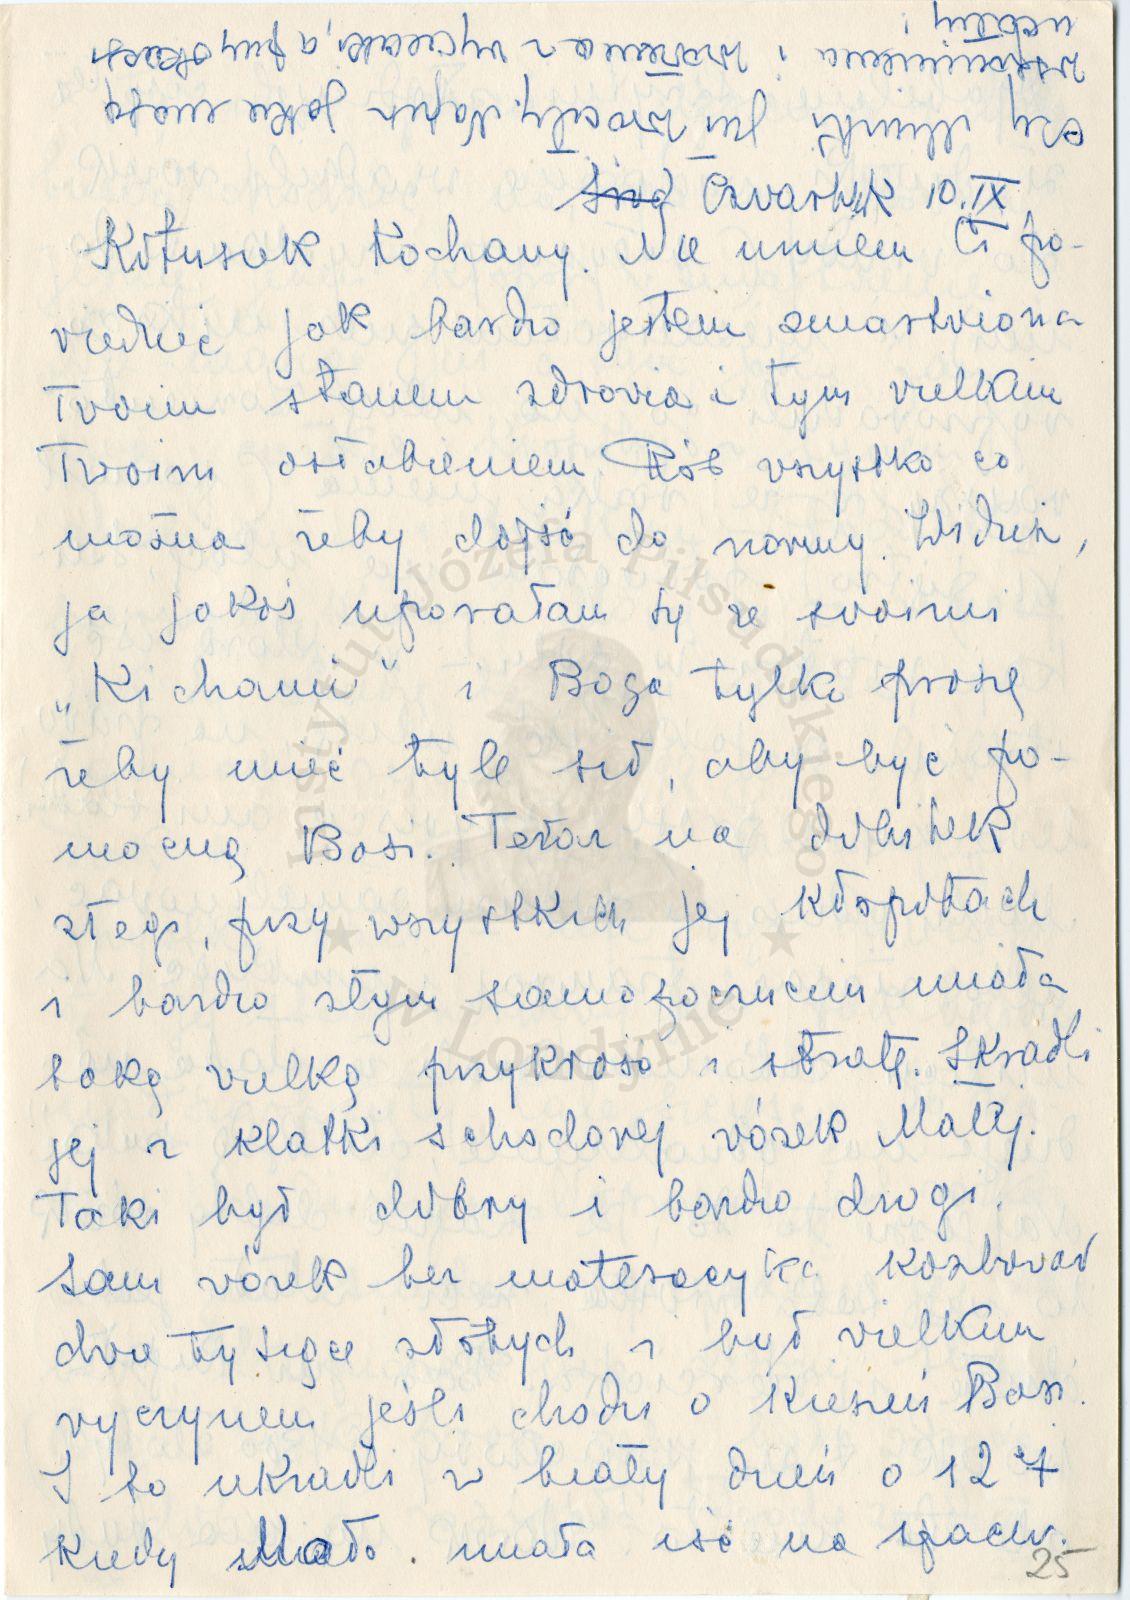 czy Muńki już wróciły. Napisz jakie mają
wspomnienia i wrażenia z wycieczki, a przy okazji
ucałuj
Czwartek 10.IX
Kotusek kochany. Nie umiem Ci po-
wiedzieć jak bardzo jestem zmartwiona
Twoim stanem zdrowia i tym wielkim
Twoim osłabieniem Rób wszystko co
można żeby dojść do normy. Widzisz,
ja jakoś uporałam się ze swoimi
„Kichami” i Boga tylko proszę
żeby mieć tyle sił, aby być po-
mocną Basi. Teraz na dobitek
złego, przy wszystkich jej kłopotach
i bardzo złym samopoczuciu miała
taką wielką przykrość i stratę. Skradli
jej z klatki schodowej wózek Małej.
Taki był dobry i bardzo drogi.
Sam wózek bez materacyka kosztował
dwa tysiące złotych i był wielkim
wyczynem jeśli chodzi o kieszeń Basi.
I to ukradli w biały dzień o 12 ej
kiedy Mała miała iść na spacer.
25
Instytut Józefa Piłsudskiego
w Londynie